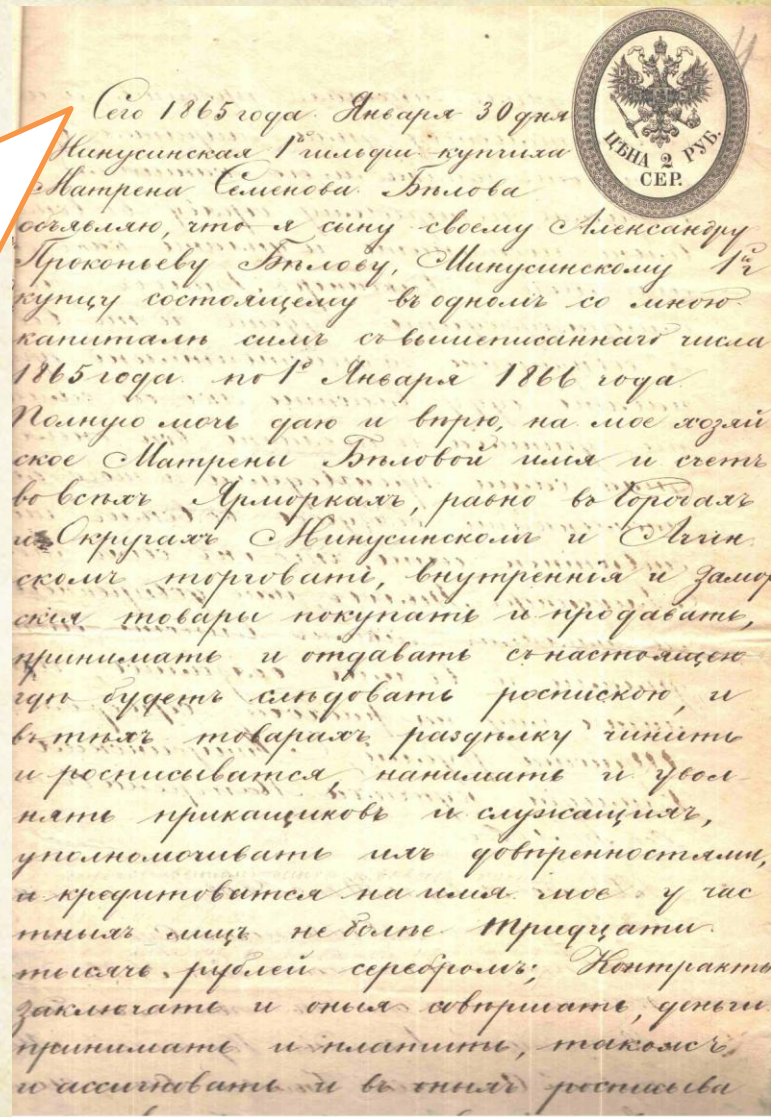 Сего 1865 года Января 30 дня
Минусинская 1й гильдии купчиха
Матрена Семенова Бѣлова
объявляю, что я сыну своему Александру
Прокопьеву Бѣлову, Минусинскому 1й г
купцу состоящему въ одномъ со мною
капиталѣ симъ съ вышеписаннаго числа
1865 года по 1е Января 1866 года
Полную мочь даю и вѣрю, на мое хозяй
ское Матрены Бѣловой имя и счетъ
во всѣхъ Ярморкахъ, равно въ Городахъ
и Округахъ Минусинскомъ и Ачин
скомъ торговать, внутреннія и замор
скія товары покупать и продавать,
принимать и отдавать съ настоящею
гдѣ будетъ слѣдовать роспискою, и
въ тѣхъ товарахъ раздѣлку чинить
и росписыватся, нанимать и увол
нять прикащиковъ и служащихъ,
уполномочивать ихъ довѣренностями,
и кредитоватся на имя мое у час
тныхъ лицъ не болѣе тридцати
тысячъ рублей серебромъ; Контракты
заключать и оныя совершать, деньги
принимать и платить, такожъ
и ассигновать и въ оныхъ росписыва
ЦѢНА 2 РУБ.
СЕР.